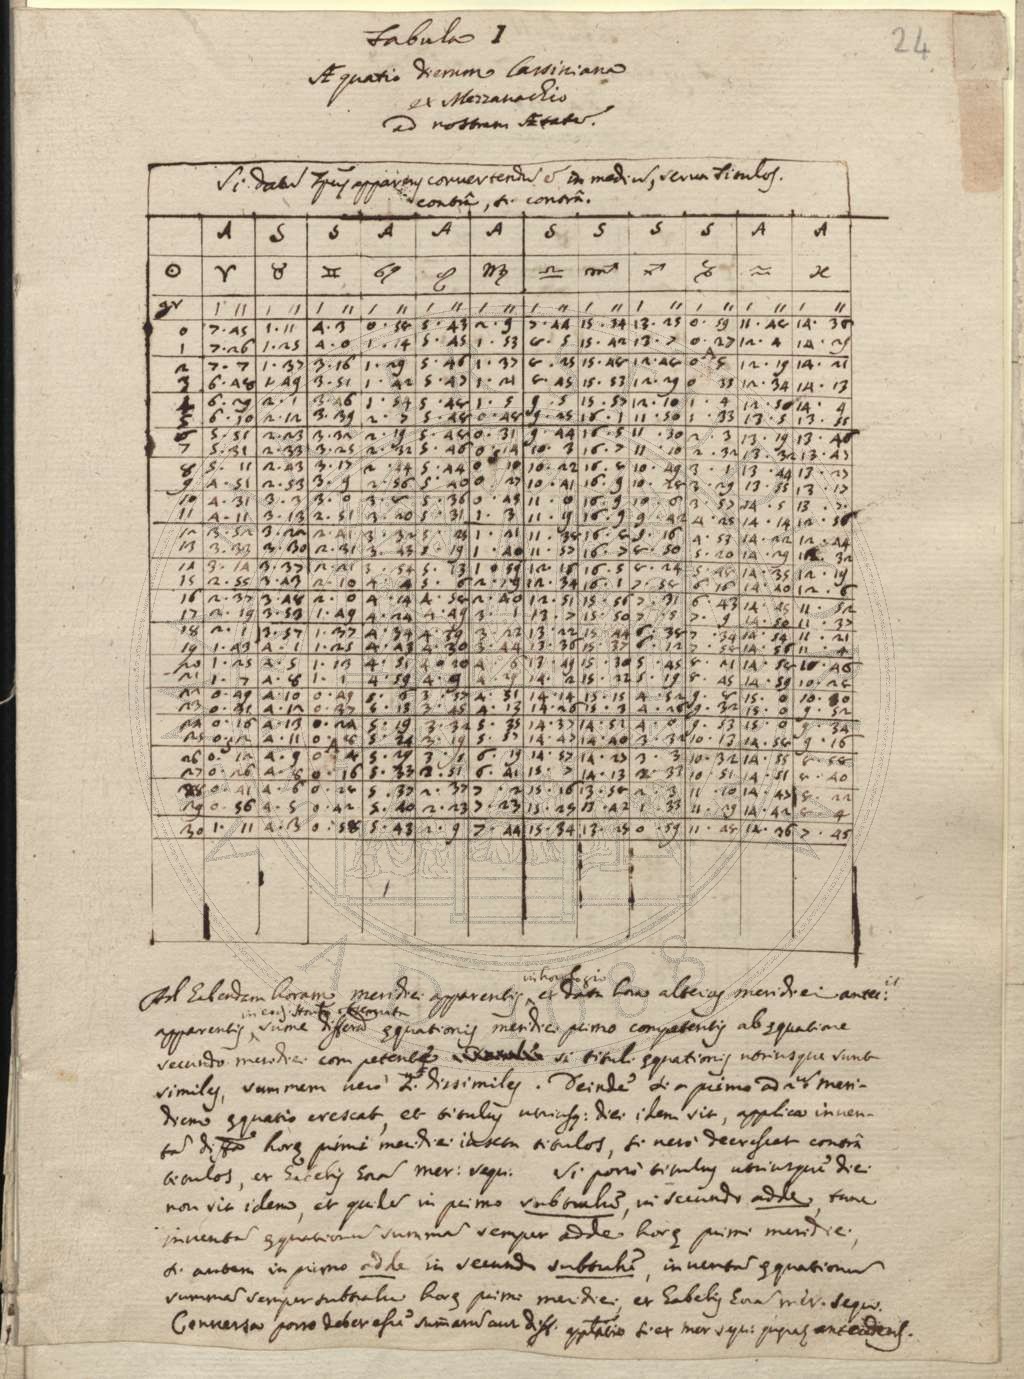 24
Tabula I
Æquatio dierum Cassiniana
ex Mezzavachio
ad nostram Ætatem.
Si datum apparens convertendum in medium, serva titulos.
contra, si contra.
A S S A A A S S S S A A
☉ ♈ ♉ ♊ ♋ ♌ ♍ ♎ ♏ ♐ ♑ ♒ ♓
gr ′ ″ ′ ″ ′ ″ ′ ″ ′ ″ ′ ″ ′ ″ ′ ″ ′ ″ ′ ″ ′ ″ ′ ″
0 7.45 1.11 4.3 0.58 5.43 2.9 7.44 15.34 13.25 0.59 11.48 14.36
1 7.26 1.25 4.0 1.14 5.45 1.53 8.5 15.42 13.2 0.27 12.4 14.29
2 7.7 1.37 3.56 1.29 5.46 1.37 8.25 15.48 12.48 0.5 12.19 14.21
3 6.48 1.49 3.51 1.42 5.47 1.21 8.45 15.53 12.29 0.33 12.34 14.13
4 6.29 2.1 3.46 1.54 5.48 1.5 9.5 15.57 12.10 1.4 12.50 14.4
5 6.10 2.12 3.39 2.7 5.48 0.48 9.25 16.1 11.50 1.33 13.5 13.55
6 5.51 2.23 3.32 2.19 5.48 0.31 9.44 16.5 11.30 2.3 13.19 13.46
7 5.31 2.33 3.25 2.32 5.46 0.14 10.3 16.7 11.10 2.32 13.32 13.37
8 5.11 2.43 3.17 2.44 5.44 0.10 10.22 16.8 10.49 3.1 13.44 13.27
9 4.51 2.53 3.9 2.56 5.40 0.27 10.41 16.9 10.28 3.29 13.55 13.17
10 4.31 3.3 3.0 3.8 5.36 0.45 11.0 16.9 10.6 3.57 14.5 13.7
11 4.11 3.13 2.51 3.20 5.31 1.3 11.19 16.9 9.42 4.25 14.14 12.56
12 3.52 3.22 2.41 3.32 5.25 1.21 11.38 16.8 9.16 4.53 14.22 12.44
13 3.33 3.30 2.31 3.43 5.19 1.40 11.57 16.7 8.50 5.20 14.29 12.32
14 3.14 3.37 2.21 3.54 5.13 1.59 12.16 16.5 8.24 5.48 14.35 12.19
15 2.55 3.43 2.10 4.4 5.6 2.19 12.34 16.1 7.58 6.16 14.40 12.6
16 2.37 3.48 2.0 4.14 4.58 2.40 12.51 15.56 7.31 6.43 14.45 11.52
17 2.19 3.53 1.49 4.24 4.49 3.1 13.7 15.50 7.5 7.9 14.50 11.37
18 2.1 3.57 1.37 4.34 4.39 3.22 13.22 15.44 6.38 7.34 14.54 11.21
19 1.43 4.1 1.25 4.43 4.30 3.44 13.36 15.37 6.12 7.58 14.56 11.4
20 1.25 4.5 1.13 4.51 4.20 4.6 13.49 15.30 5.45 8.21 14.58 10.46
21 1.7 4.8 1.1 4.59 4.9 4.29 14.2 15.22 5.19 8.45 14.59 10.28
22 0.49 4.10 0.49 5.6 3.57 4.51 14.14 15.15 4.52 9.8 15.0 10.10
23 0.31 4.12 0.37 5.13 3.45 4.13 14.26 15.3 4.26 9.32 15.0 9.52
24 0.16 4.13 0.24 5.19 3.32 5.35 14.37 14.52 4.0 9.53 15.0 9.34
25 0.2 4.11 0.8 5.24 3.19 5.57 14.47 14.40 3.32 10.13 14.58 9.16
26 0.12 4.9 0.4 5.29 3.5 6.19 14.57 14.27 3.3 10.32 14.55 8.58
27 0.26 4.8 0.16 5.33 2.51 6.41 15.7 14.13 2.33 10.51 14.51 8.40
28 0.41 4.6 0.28 5.37 2.37 7.2 15.16 13.58 2.3 11.10 14.47 8.22
29 0.56 4.5 0.42 5.40 2.23 7.23 15.25 13.42 1.33 11.29 14.42 8.4
30 1.11 4.3 0.58 5.43 2.9 7.44 15.34 13.25 0.59 11.48 14.36 7.45
Ad habendam horam meridiei apparentis in horologio ex data hora alterius meridiei antei:
apparentis, sume differentiam æquationis meridiei primo competentis ab æquatione
secundo meridiei competente si tituli æquationis utriusque sunt
similes, summam vero si dissimiles. Deinde si a primo ad meri-
diem æquatio crescat, et titulus utriusq: diei idem sit, applica inven-
tam horæ primi meridiei iuxta titulos, si vero decrescat contra
titulos, et habebis horam mer: sequ: Si porro titulus utriusque diei
non sit idem, et quidem in primo subtrahe, in secundo adde, tunc
inventam æquationum summam semper adde horæ primi meridiei,
si autem in primo adde in secundo subtrahe, inventam æquationum
summam semper subtrahe horæ primi meridiei, et habebis horam mer. sequ.
Conversa porro debet esse summæ aut diff. si ex mer sequ: